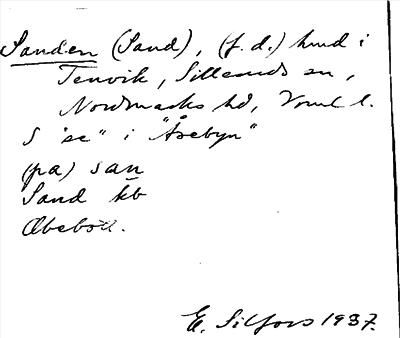 Sanden (Sand), (f.d.) hmd i
Tenvik, Silleruds sn,
Nordmarks hd, Vrml l.
S "se" i "Årebyn"
(på) san
Sand kb
Obebott.
E. Silfors 1937.